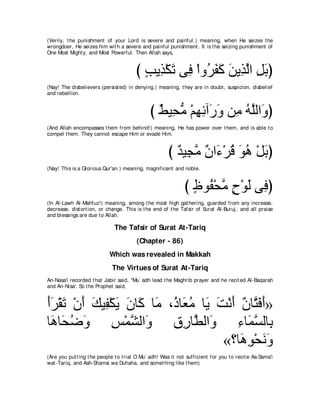 (Verily, the punishment of your Lord is severe and painful.) meaning, when He seizes the
wrongdoer, He seizes him with a severe and painful punishment. It is the seizing punishment of
One Most Mighty, and Most Powerful. Then Allah says,
﴿ بَلِ الَّذِينَ كَفَرُواْ فِى تَكْذِيبٍ ﴾
(Nay! The disbelievers (persisted) in denying.) meaning, they are in doubt, suspicion, disbelief
and rebellion.
﴿ وَاللَّهُ مِن وَرَآئِهِمْ مُّحِيطٌ ﴾
(And Allah encompasses them from behind!) meaning, He has power over them, and is able to
compel them. They cannot escape Him or evade Him.
﴿ بَلْ هُوَ قُرْءَانٌ مَّجِيدٌ ﴾
(Nay! This is a Glorious Qur'an.) meaning, magnificent and noble.
﴿ فِى لَوْحٍ مَّحْفُوظٍ ﴾
(In Al-Lawh Al-Mahfuz!) meaning, among the most high gathering, guarded from any increase,
decrease, distortion, or change. This is the end of the Tafsir of Surat Al-Buruj, and all praise
and blessings are due to Allah.
The Tafsir of Surat At-Tariq
(Chapter - 86)
Which was revealed in Makkah
The Virtues of Surat At-Tariq
An-Nasa'i recorded that Jabir said, "Mu`adh lead the Maghrib prayer and he recited Al-Baqarah
and An-Nisa'. So the Prophet said,
«أَفَتَّانٌ أَنْتَ يَا مُعَاذُ، مَا كَانَ يَكْفِيكَ أَنْ تَقْرَأَ
بِالسَّمَاءِ وَالطَّارِقِ وَالشَّمْسِ وَضُحَاهَا
وَنَحْوِهَا؟»
(Are you putting the people to trial O Mu`adh! Was it not sufficient for you to recite As-Sama'i
wat-Tariq, and Ash-Shamsi wa Duhaha, and something like them)